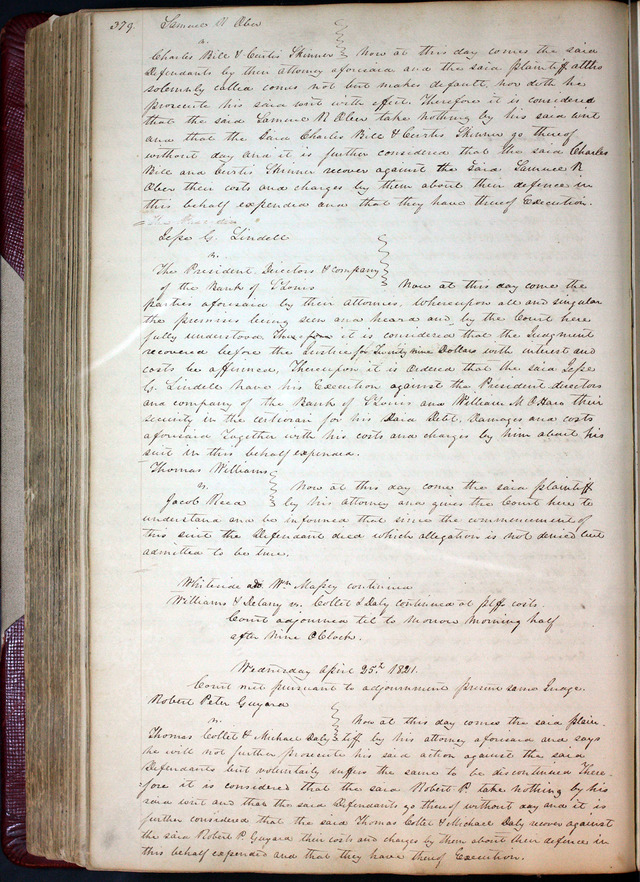 379.
Samuel R Ober
a.
Charles Bill & Curtis Skinner } Now at this day comes the said
Defendants by their attorney aforesaid and the said plaintiff altho
solemnly called comes not but makes default, nor doth he
prosecute his said writ with effect. Therefore it is considered
that the said Samuel R Ober take nothing by his said writ
and that the said Charles Bill & Curtis Skinner go thereof
without day and it is further considered that the said Charles
Bill and Curtis Skinner recover against the said Samuel R
Ober their costs and charges by them about their defence in
this behalf expended and that they have thereof Execution.
Jesse G. Lindell
vs.
The President, Directors & Company
of the Bank of St Louis } Now at this day come the
parties aforesaid by their attornies, whereupon all and singular
the premises being seen and heard and by the Court here
fully understood. Therefore it is considered that the Judgment
recovered before the Justice for Twenty nine Dollars with interest and
costs be affirmed, Thereupon it is ordered that the said Jesse
G. Lindell have his Execution against the President directors
and company of the Bank of St Louis and William M. OHara their
security in the certiorari for his said Debt, Damages and costs
aforesaid together with his costs and charges by him about his
suit in this behalf expended.
Thomas Williams
vs.
Jacob Reed } Now at this day come the said plaintiff
by his attorney and gives the Court here to
understand and be informed that since the commencement of
this suit the Defendant died which allegation is not denied but
admitted to be true.
Whiteside ads Wm Massey continued
Williams & Delany vs. Collet & Daly continued at ptffs costs.
Court adjourned til to Morrow Morning half
after Nine O'Clock.
Wednesday April 25th 1821.
Court met pursuant to adjournment present same Judge.
Robert Peter Guyard
vs.
Thomas Collet & Michael Daly } Now at this day comes the said plain-
tiff by his attorney aforesaid and says
he will not further prosecute his said action against the said
Defendants but voluntarily suffers the same to be discontinued There-
fore it is considered that the said Robert P. take nothing by his
said writ and that the said Defendants go thereof without day and it is
further considered that the said Thomas Collet & Michael Daly recover against
the said Robert P. Guyard their costs and charges by them about their defence in
this behalf expended and that they have thereof Execution.